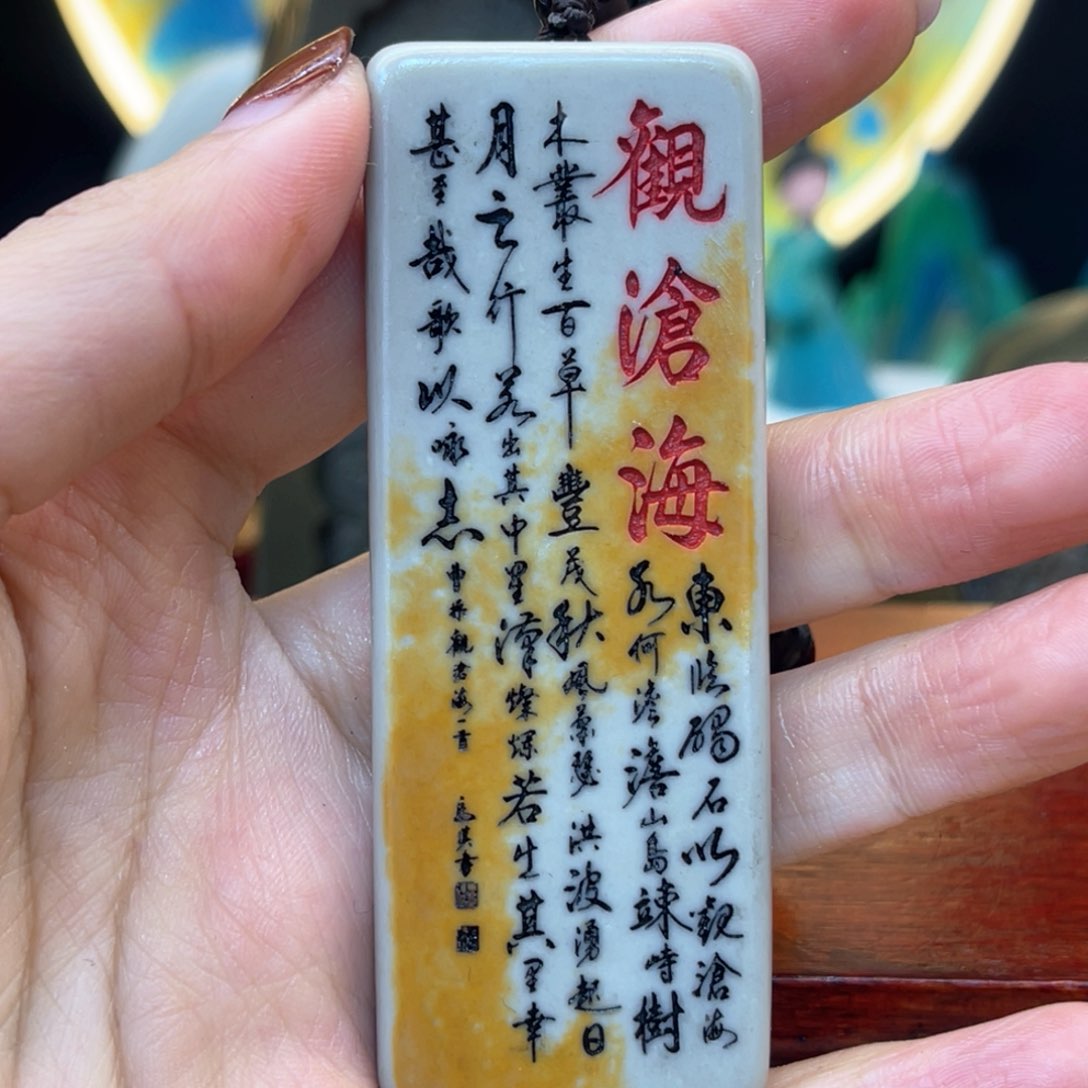 觀滄海
東臨碣石以觀滄海
水何澹澹山島竦峙樹
木叢生百草豐茂秋風蕭瑟洪波湧起日
月之行若出其中星漢燦爛若出其里幸
甚至哉歌以詠志
曹操觀滄海一首